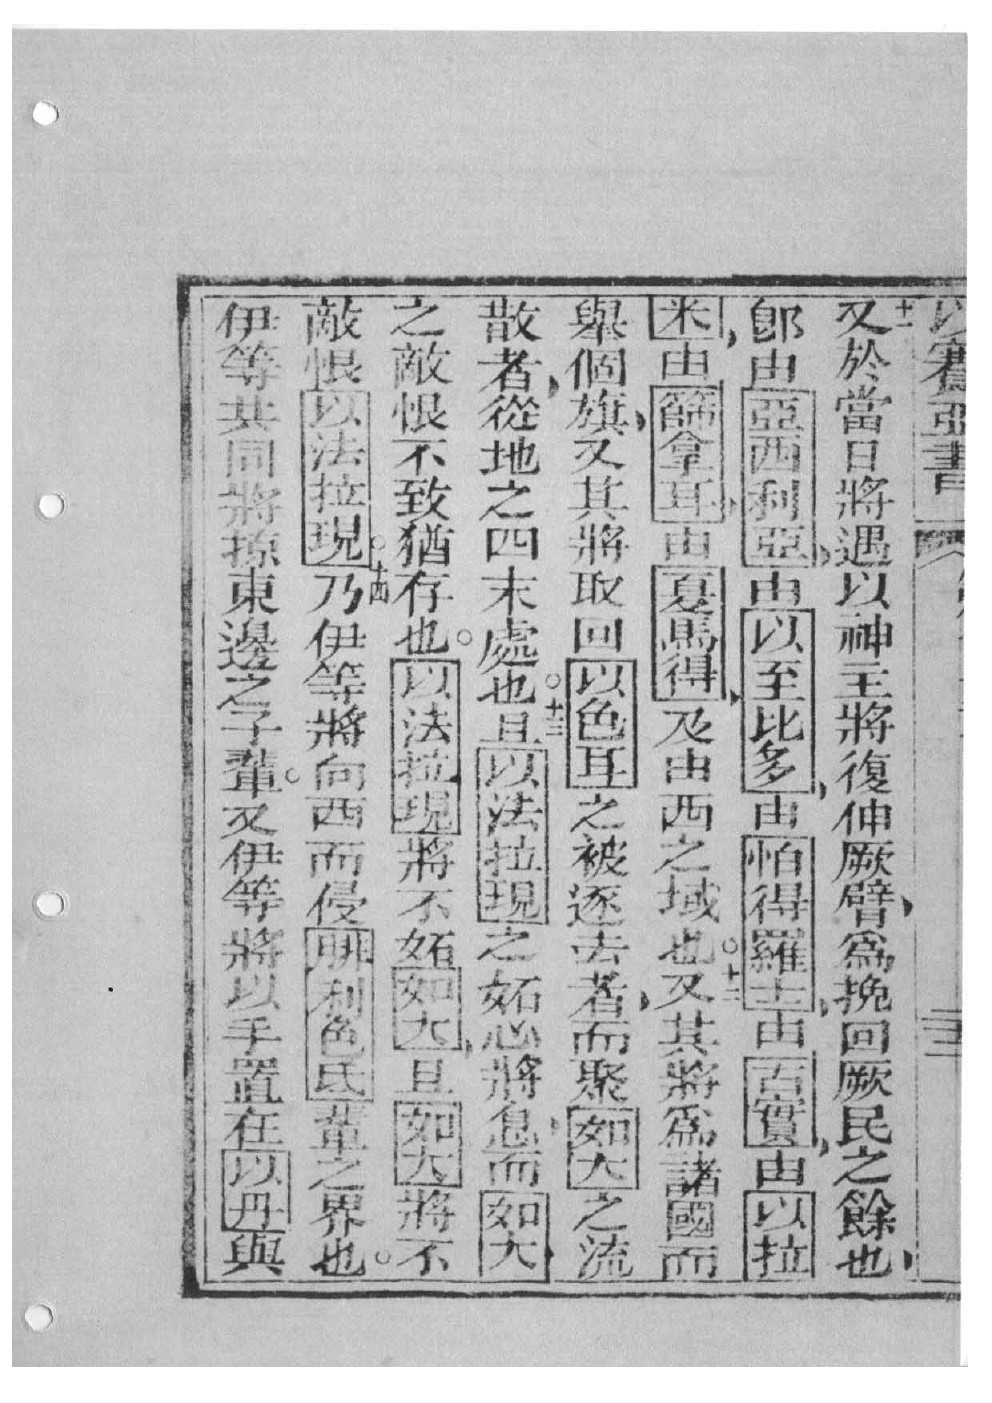 以賽亞書
十一又於當日將遇以神主將復伸厥臂、爲挽回厥民之餘也、
郎由亞西利亞、由以至比多、由怕得羅士、由古實、由以拉
米、由篩拿耳、由夏馬得、及由西之域也。十二又其將爲諸國而
舉個旗、又其將取回以色耳之被逐去者、而聚如大之流
散者、從地之四末處也。十三且以法拉現之妬必將息、而如大
之敵恨不致猶存也。以法拉現將不妬如大、且如大將不
敵恨以法拉現。十四乃伊等將向西而侵腓利色氏輩之界也。
伊等共同將掠東邊之子輩。又伊等將以手置在以丹與